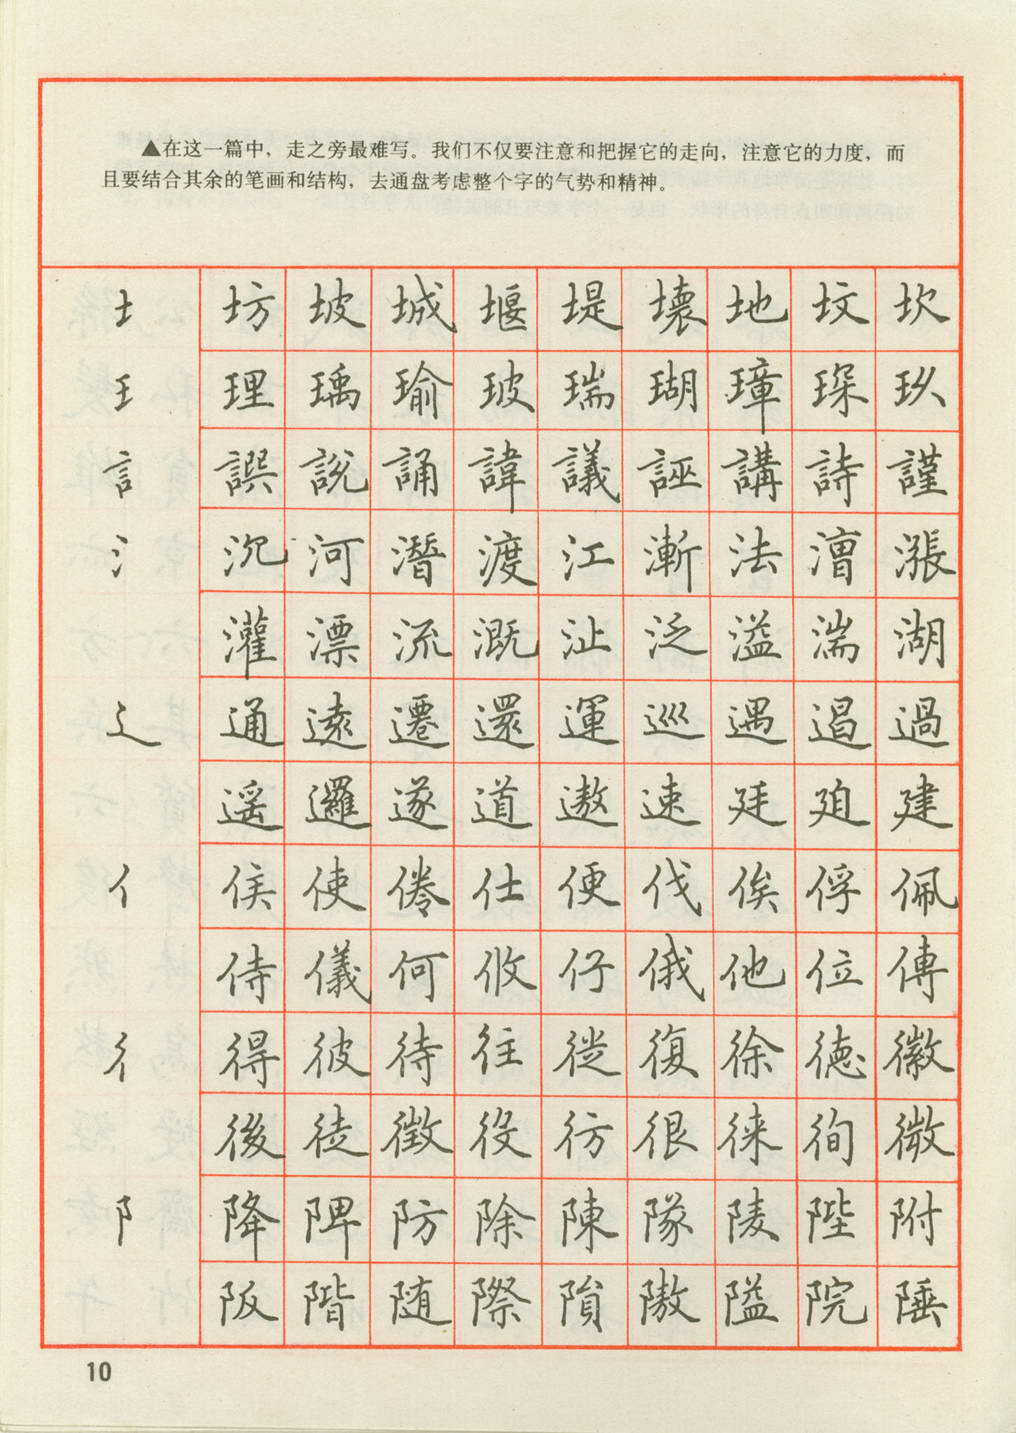 ▲在这一篇中，走之旁最难写。我们不仅要注意和把握它的走向，注意它的力度，而
且要结合其余的笔画和结构，去通盘考虑整个字的气势和精神。
土 坊 坡 城 堰 堤 壞 地 坟 坎
王 理 瑀 瑜 玻 瑞 瑚 璋 琛 玖
訁 譔 説 誦 諱 議 誣 講 詩 謹
氵 沉 河 潛 渡 江 漸 法 漕 漲
灌 漂 流 溉 沚 泛 溢 湍 湖
辶 通 遠 遷 還 運 巡 遇 遏 過
遥 邏 遂 道 遨 速 廷 廸 建
亻 侯 使 倦 仕 便 伐 俟 俘 佩
侍 儀 何 攸 仔 俄 他 位 傳
彳 得 彼 待 往 徙 復 徐 德 徽
後 徒 徵 役 彷 很 徠 徇 微
阝 降 陴 防 除 陳 隊 陵 陛 附
阪 階 随 際 隕 隞 隘 院 陲
10